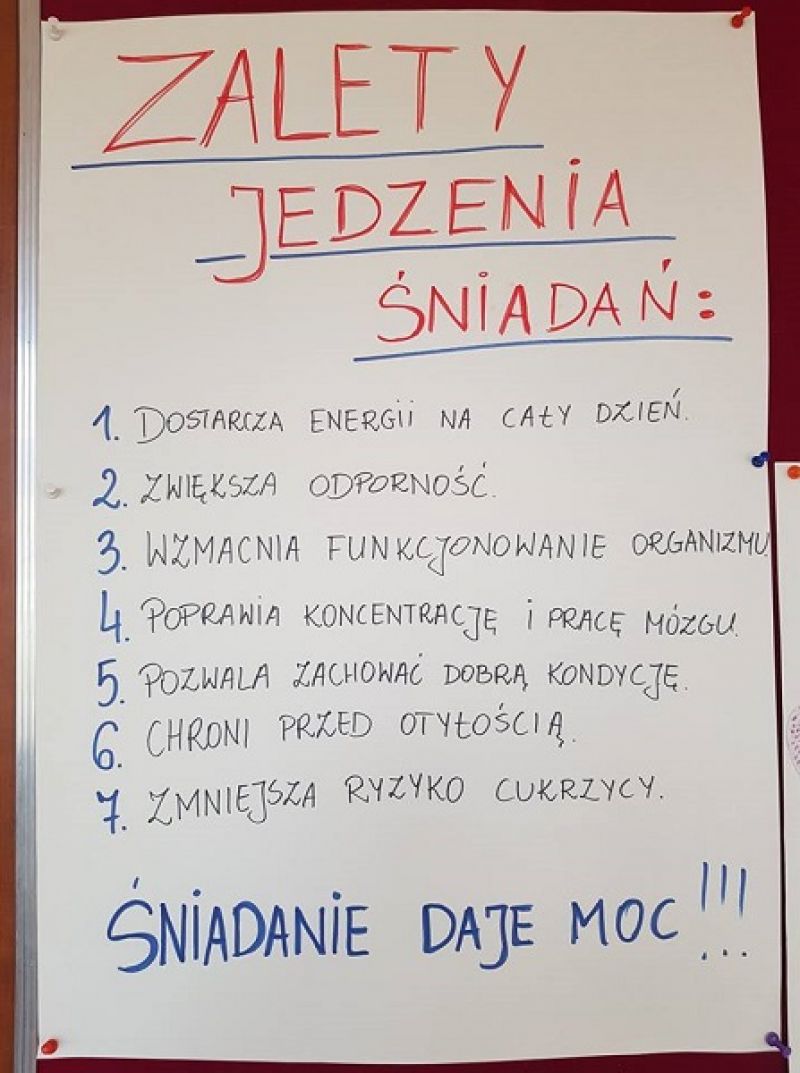 ZALETY
JEDZENIA
ŚNIADAŃ:
1. DOSTARCZA ENERGII NA CAŁY DZIEŃ.
2. ZWIĘKSZA ODPORNOŚĆ.
3. WZMACNIA FUNKCJONOWANIE ORGANIZMU.
4. POPRAWIA KONCENTRACJĘ I PRACĘ MÓZGU.
5. POZWALA ZACHOWAĆ DOBRĄ KONDYCJĘ.
6. CHRONI PRZED OTYŁOŚCIĄ.
7. ZMNIEJSZA RYZYKO CUKRZYCY.
ŚNIADANIE DAJE MOC!!!